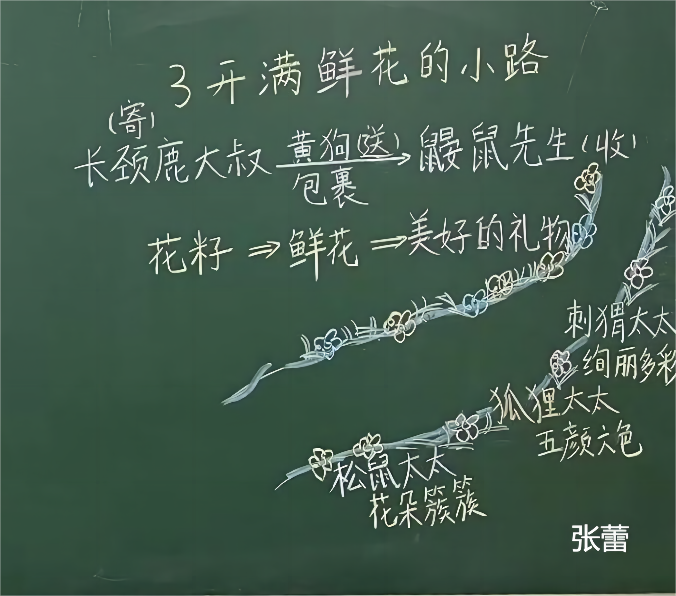 3 开满鲜花的小路
(寄) 黄狗(送) (收)
长颈鹿大叔 → 鼹鼠先生
包裹
花籽 ⇒ 鲜花 ⇒ 美好的礼物
刺猬太太
绚丽多彩
狐狸太太
五颜六色
松鼠太太
花朵簇簇
张蕾